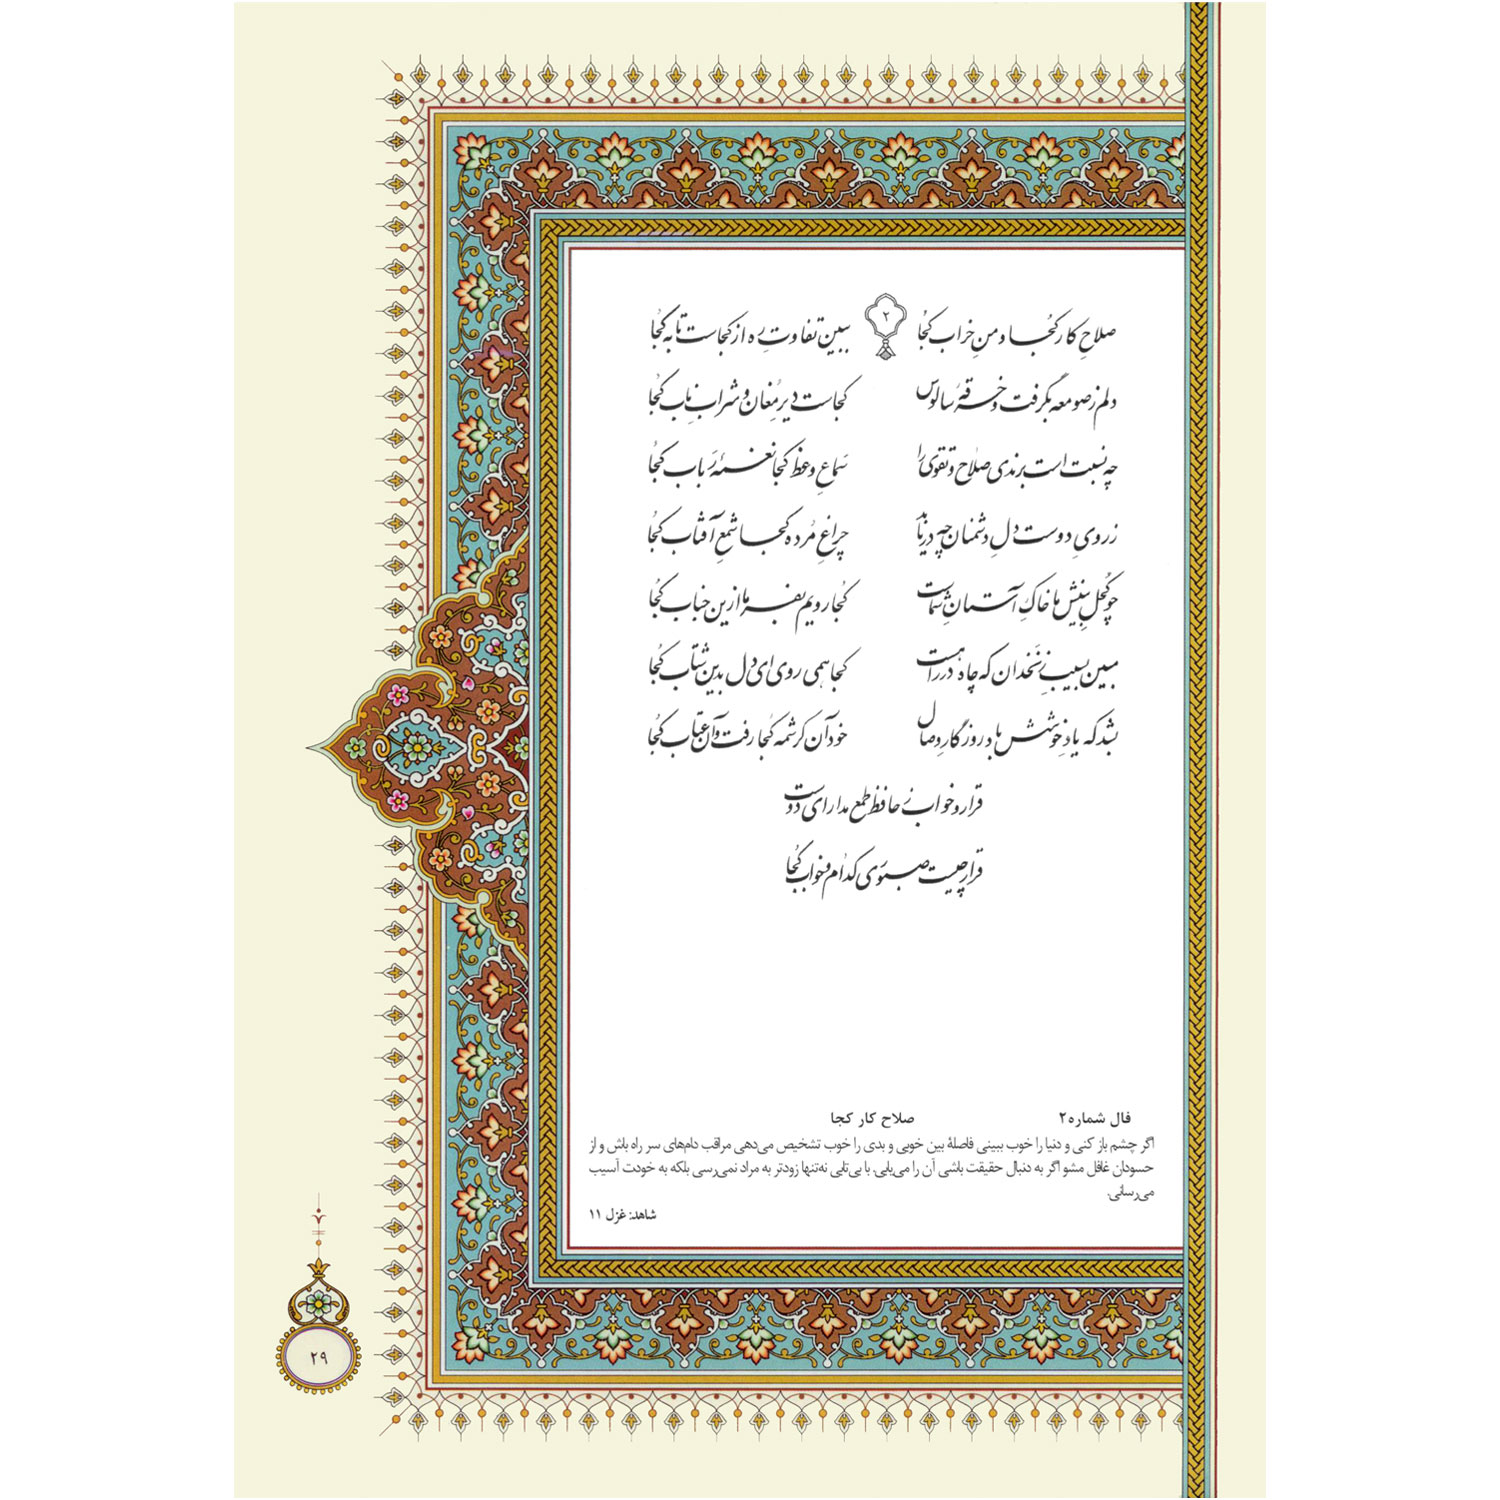 ۲
صلاحِ کار کجا و منِ خراب کجا ببین تفاوتِ ره از کجاست تا به کجا
دلم ز صومعه بگرفت و خرقهٔ سالوس کجاست دیرِ مُغان و شرابِ ناب کجا
چه نسبت است برندی صلاح و تقوی را سَماعِ وعظ کجا نغمهٔ رَباب کجا
ز رویِ دوست دلِ دشمنان چه دریابد چراغِ مُرده کجا شمعِ آفتاب کجا
چو کُحلِ بینشِ ما خاکِ آستانِ شماست کجا رویم بفرما ازین جناب کجا
مبین بسیبِ زَنَخدان که چاه در راه است کجا همی روی ای دل بدین شتاب کجا
بشد که یادِ خوشش باد روزگارِ وصال خود آن کرشمه کجا رفت و آن عتاب کجا
قرار و خواب ز حافظ طمع مدار ای دوست
قرار چیست صبوری کدام و خواب کجا
فال شماره ۲ صلاح کار کجا
اگر چشم باز کنی و دنیا را خوب ببینی فاصلهٔ بین خوبی و بدی را خوب تشخیص می‌دهی مراقب دام‌های سر راه باش و از
حسودان غافل مشو اگر به دنبال حقیقت باشی آن را می‌یابی. با بی‌تابی نه‌تنها زودتر به مراد نمی‌رسی بلکه به خودت آسیب
می‌رسانی.
شاهد: غزل ۱۱
۲۹